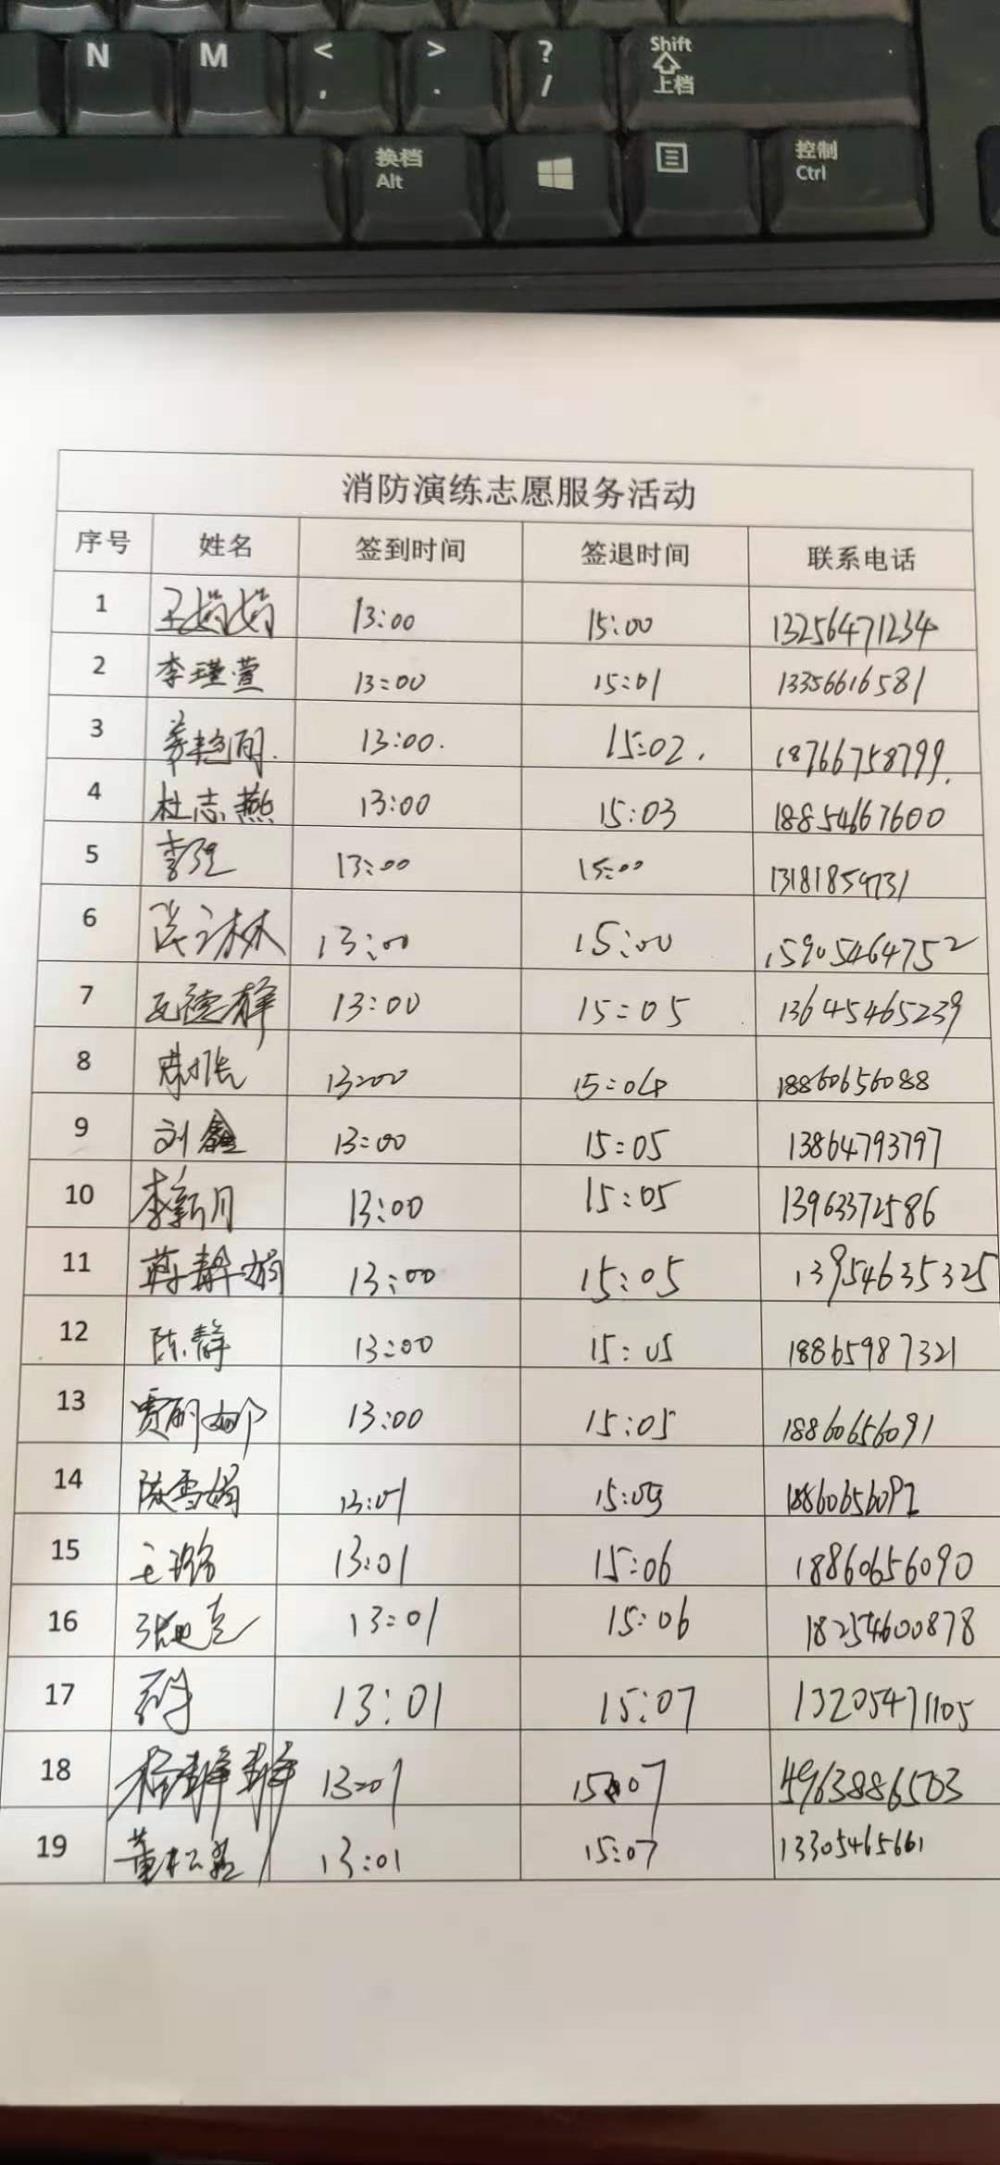 N M < , > . ? / Shift 上档
换档 Alt 控制 Ctrl
消防演练志愿服务活动
序号 姓名 签到时间 签退时间 联系电话
1 王娟娟 13:00 15:00 13256471234
2 李瑾萱 13:00 15:01 13356616581
3 13:00. 15:02. 18766758799.
4 杜志燕 13:00 15:03 18854667600
5 李强 13:00 15:00 13181854731
6 13:00 15:00 15905464752
7 13:00 15:05 13645465239
8 13:00 15:04 18860656088
9 刘鑫 13:00 15:05 13864793797
10 李新月 13:00 15:05 13963372586
11 蒋静娟 13:00 15:05 13954635325
12 陈静 13:00 15:05 18865987321
13 13:00 15:05 18860656091
14 陈雪娟 13:01 15:05 18860656092
15 王璐 13:01 15:06 18860656090
16 13:01 15:06 18254600878
17 13:01 15:07 13205471105
18 程静静 13:01 15:07 4963886503
19 13:01 15:07 13305465661